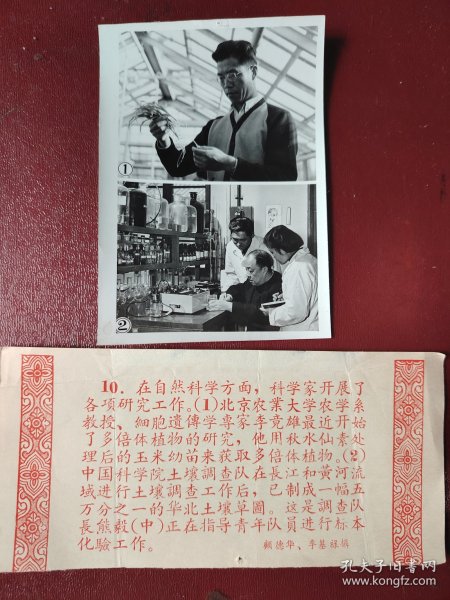 ①
②
10. 在自然科学方面，科学家开展了
各项研究工作。(1)北京农業大学农学系
教授、細胞遺傳学專家李竞雄最近开始
了多倍体植物的研究，他用秋水仙素处
理后的玉米幼苗来获取多倍体植物。(2)
中国科学院土壤調查队在長江和黄河流
域进行土壤調查工作后，已制成一幅五
万分之一的华北土壤草圖。这是調查队
長熊毅(中)正在指导青年队員进行标本
化驗工作。
顧德华、李基禄攝
孔夫子旧书网
www.kongfz.com